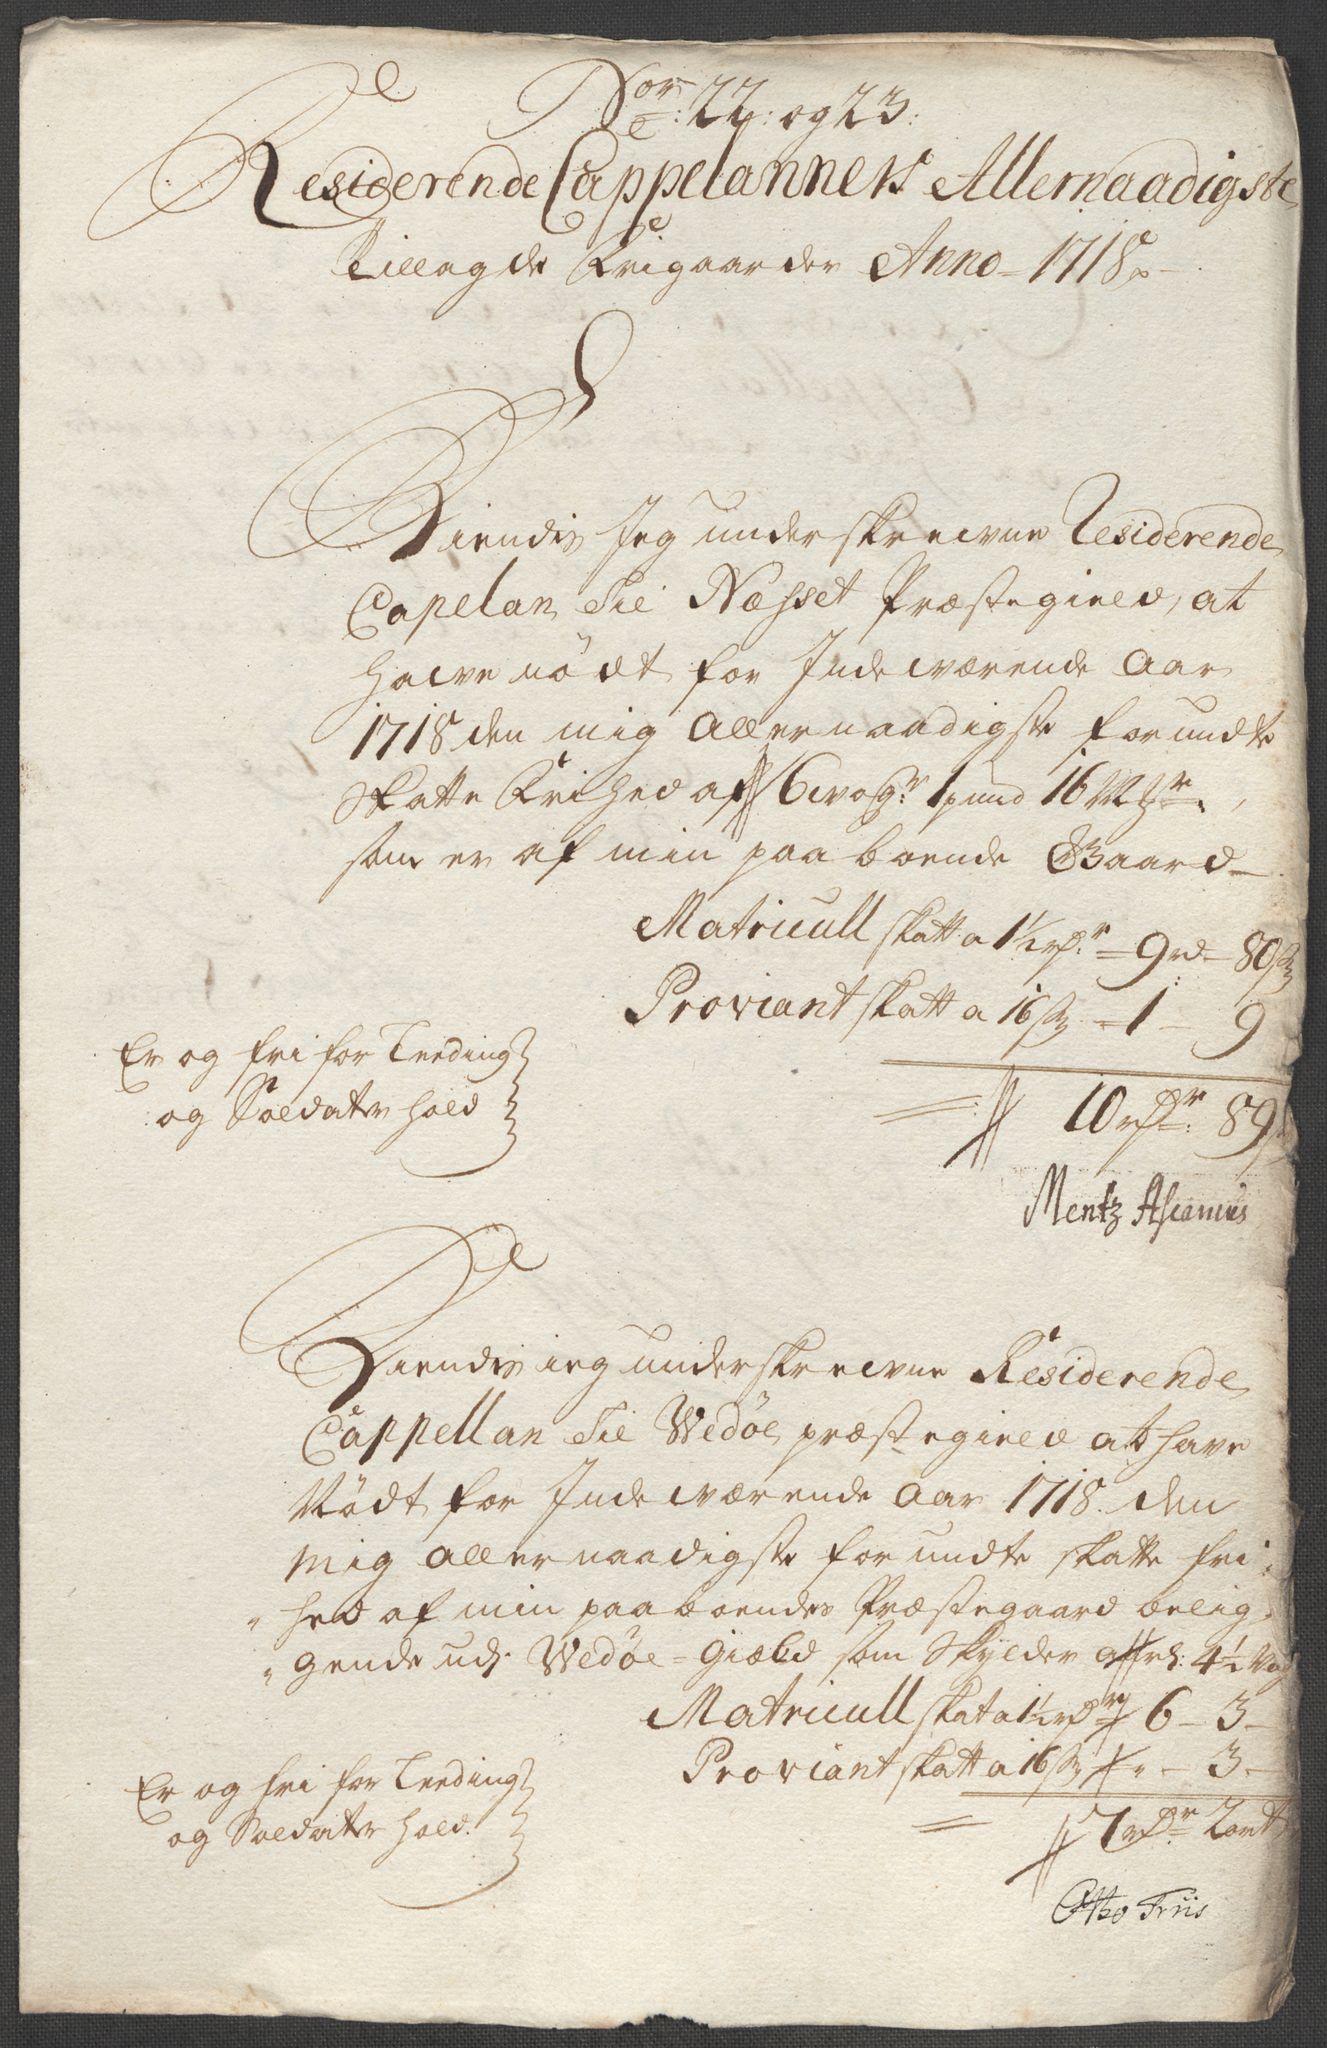 Nor: 22: og 23:
Residerende Cappelanners Allernaadigste
Tillagde Frigaarder Anno 1718
Kiendis Jeg underskrevne Residerende
Capelan til Næsset Præstegield, at
hafve nödt for Indeværende Aar
1718 den mig allernaadigste forundte
Skatte Frihed af 6 vogr 1 pund 16 Mkr,
som er af min paaboende Gaard
Matricull skatt a 1½ rdr = 9 rd 80 s
Proviant skatt a 16 s = 1 - 9
Er og fri for Leeding
og Soldater hold
10 rdr: 89 s
Mentz Ascanius
Kiendis ieg underskrevne Residerende
Cappellan til Wedöe præstegield at have
Nödt for Indeværende Aar 1718. den
mig allernaadigste forundte skatte fri:
hed af min paaboendes Præstegaard belig-
gende udj Wedöe = Giæld som Skylder aarl: 4½ Vog
Matricull skat a 1½ rdr 6 - 3 -
Proviant skatt a 16 s " - 3 -
Er og fri for Leeding
og Soldater hold.
7 rdr 2 ort
Otto Friis